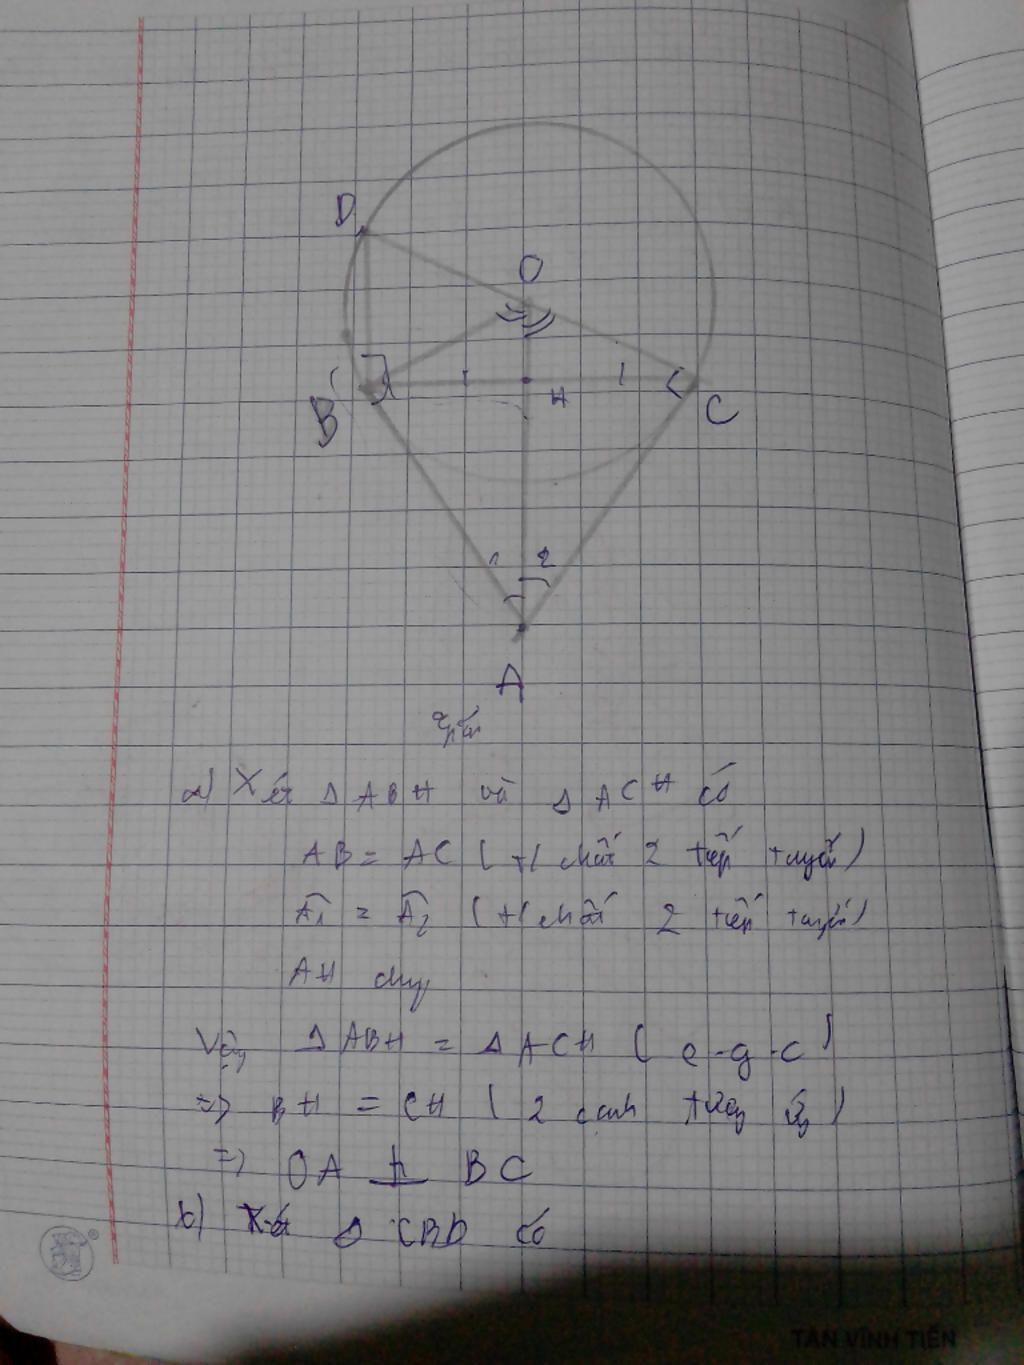 D
O
B
H
C
1 2
A
giải
a) Xét Δ ABH và Δ ACH có
AB = AC ( t/c 2 tiếp tuyến )
A1 = A2 ( t/c 2 tiếp tuyến )
AH chung
Vậy Δ ABH = Δ ACH ( c-g-c )
=> BH = CH ( 2 cạnh tương ứng )
=> OA ⊥ BC
b) Xét Δ CBD có
TAN VĨNH TIẾN